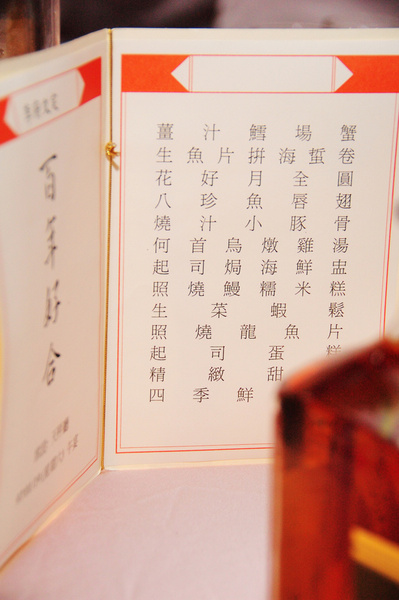 百年好合
薑汁鱈場蟹
生魚片拼海蜇卷
花好月全圓
八珍魚唇翅
燒汁小豚骨
何首烏燉雞湯
起司焗海鮮盅
照燒鰻糯米糕
生菜蝦鬆
照燒龍魚片
起司蛋糕
精緻甜
四季鮮